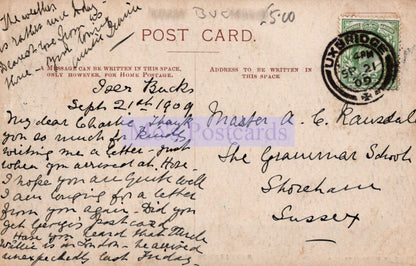 The weather
is rather
Dearest
love
BUCK
£5.00
POST CARD.
A MESSAGE CAN BE WRITTEN IN THIS SPACE,
ONLY HOWEVER, FOR HOME POSTAGE.
ADDRESS TO BE WRITTEN IN
THIS SPACE.
UXBRIDGE
SP 21
09
Iver Bucks
Sept. 21st 1909
My dear Charlie Thank
you so much for kindly
writing me a letter - just
when you arrived at
I hope you are quite well
I am longing for a letter
from you again - Did you
get Georgie's postcard
Have you heard that Uncle
Willie is in London - he arrived
unexpectedly last Friday
Master A. C. Ransdale
The Grammar School
Shoreham
Sussex
Postcards